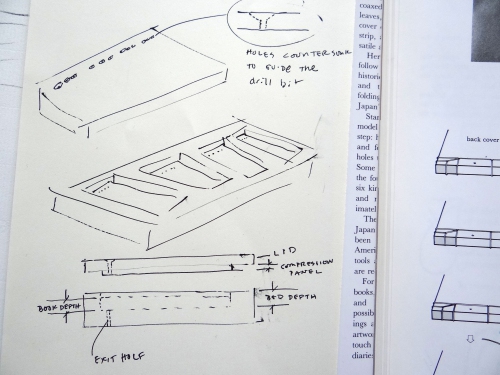 HOLES COUNTERSUNK
TO GUIDE THE
drill bit
LID
COMPRESSION
PANEL
BOOK DEPTH
BED DEPTH
EXIT HOLF
coaxed
leaves,
cover
strip,
satile
Her
follow
historic
and
folding
Japan
Star
model
step:
and
holes
Some
the fo
six kin
and
imatel
The
Japan
been
Ameri
tools
are re
For
books.
and
possib
ings a
artwo
touch
diaries
back cover